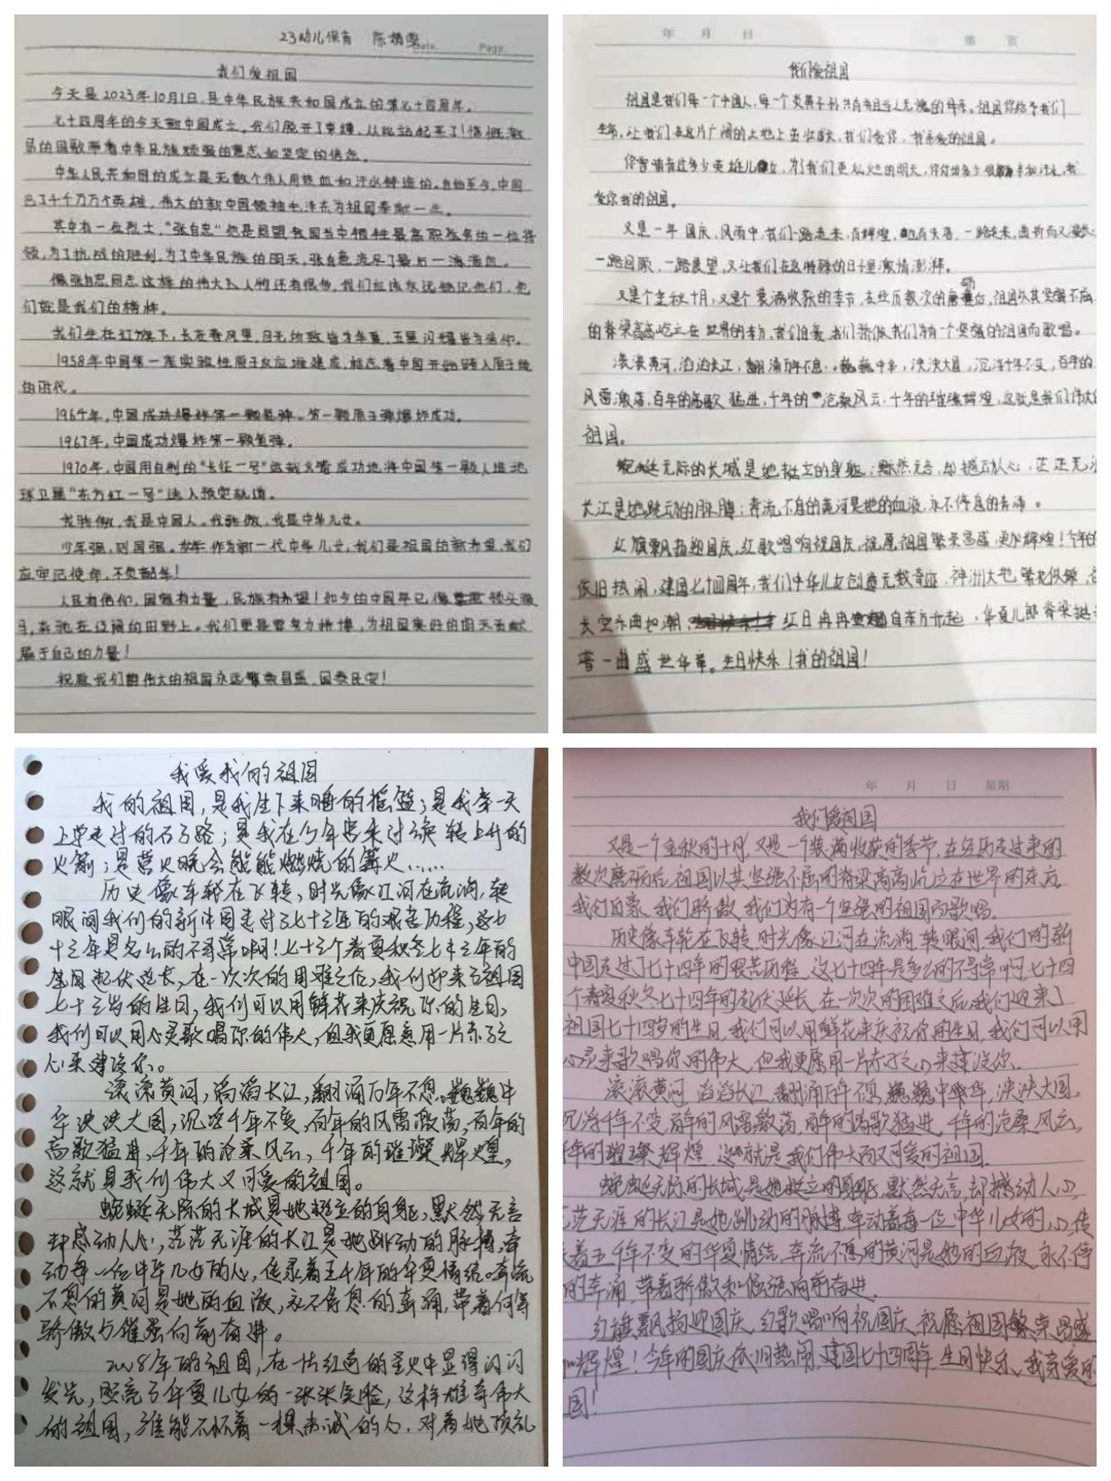 23幼儿保育
Date.
Page.
我们爱祖国
今天是2023年10月1日,是中华民族共和国成立的第七十四周年。
七十四周年的今天新中国成立,我们脱开了束缚,从此站起来了!慷慨激
昂的国歌带着中华民族顽强的意志,如坚定的信念。
中华人民共和国的成立是无数个伟人用热血和汗水铸造的。自始至今,中国
出了千千万万个英雄,伟大的新中国领袖毛泽东为祖国奉献一生。
其中有一位烈士,“张自忠”他是同盟我国当中牺牲最高职务的一位将
领,为了抗战的胜利,为了中华民族的明天,张自忠流尽了最后一滴鲜血。
像张自忠同志这样的伟大人物还有很多,我们应该永远铭记他们,他
们就是我们的榜样。
我们生在红旗下,长在春风里,目光所致皆为华夏,五星闪耀皆为信仰。
1958年中国第一座实验性原子反应堆建成,标志着中国开始跨入原子能
的时代。
1964年,中国第一颗原子弹爆炸成功。
1967年,中国成功爆炸第一颗氢弹。
1970年,中国用自制的“长征一号”运载火箭成功地将中国第一颗人造地
球卫星“东方红一号”送入预定轨道。
我骄傲,我是中国人。我骄傲,我是中华儿女。
少年强,则国强。作为新一代中华儿女,我们是祖国的新希望,我们
应牢记使命,不负韶华!
人民有信仰,国家有力量,民族有希望!如今的中国早已像领头骏
马,奔驰在辽阔的田野上。我们更是要努力拼搏,为祖国美好的明天贡献
属于自己的力量!
祝愿我们伟大的祖国永远繁荣昌盛,国泰民安!
年 月 日
第 页
我们爱祖国
祖国是我们每一个中国人,每一个炎黄子孙共有的且当之无愧的母亲。祖国你给予我们
生命,让我们在这片广阔的土地上茁壮成长,我们爱你,我亲爱的祖国。
你曾哺育过多少英雄儿女,为了我们更灿烂的明天,你付出多少艰辛和汗水,我
爱你我的祖国。
又是一年国庆,风雨中,我们一路走来,有辉煌,也有失落,一路走来,曲折而又漫长
一路回顾,一路展望,又让我们在这特殊的日子里激情澎湃。
又是个金秋十月,又是个装满收获的季节,在经历数次的磨难后,祖国以其坚强不屈
的脊梁高高屹立在世界的东方,我们自豪,我们骄傲,我们为有一个坚强的祖国而歌唱。
滚滚黄河,滔滔长江,翻涌万年不息,巍巍中华,泱泱大国,沉浮千年不变,百年的
风雷激荡,百年的高歌猛进,千年的沧桑风云,千年的璀璨辉煌,这就是我们伟大
祖国。
蜿蜒无际的长城是她挺立的身躯;默然无言,却撼动人心,茫茫无涯
长江是她跳动的脉搏;奔流不息的黄河是她的血液,永不停息的奔涌。
红旗飘扬迎国庆,红歌唱响祝国庆,祝愿祖国繁荣昌盛,更加辉煌!今年的
依旧热闹,建国七十四周年,我们中华儿女创造无数奇迹,神洲大地繁花似锦,
长空乐曲如潮,红日冉冉自东方升起,华夏儿郎脊梁挺
着一曲盛世华章。生日快乐!我的祖国!
我爱我的祖国
我的祖国,是我生下来睡的摇篮;是我每一天
上学走过的石子路;是我在今年安来讨论转上升的
火箭;是营火晚会能能燃烧的篝火……
历史像车轮在飞转,时光像江河在流淌,转
眼间我们的新中国走过了七十三年的艰苦历程,这七
十三年是多么的不寻常啊!七十三个春夏秋冬七十三年的
起伏延长,在一次次的困难之后,我们迎来了祖国
七十三岁的生日,我们可以用鲜花来庆祝你的生日,
我们可以用心灵歌唱你的伟大,但我更愿意用一片赤子之
心来建设你。
滚滚黄河,滔滔长江,翻涌万年不息,巍巍中
华泱泱大国,沉浮千年不变,百年的风雷激荡,百年的
高歌猛进,千年的沧桑风云,千年的璀璨辉煌,
这就是我们伟大又可爱的祖国。
蜿蜒无际的长城是她挺立的身躯,默然无言
却感动人心,茫茫无涯的长江是她跳动的脉搏,牵
动每一位中华儿女的心,传承着五千年的华夏情结。奔流
不息的黄河是她的血液,永不停息的奔涌,带着
骄傲与倔强向前奋进。
2008年的祖国,在一片红色的圣火中显得闪闪
发光,照亮了华夏儿女的一张张笑脸,这样雄奇伟大
的祖国,谁能不怀着一棵赤诚的心,对着她顶礼
年 月 日 星期
我们爱祖国
又是一个金秋的十月,又是一个装满收获的季节,在经历过来的
数次磨砺后,祖国以其坚强不屈的脊梁高高屹立在世界的东方
我们自豪,我们骄傲,我们为有一个坚强的祖国而歌唱。
历史像车轮在飞转,时光像江河在流淌,转眼间,我们的新
中国走过了七十四年的艰苦历程,这七十四年是多么的不寻常啊,七十四
个春夏秋冬七十四年的起伏延长,在一次次的困难之后,我们迎来了
祖国七十四岁的生日,我们可以用鲜花来庆祝你的生日,我们可以用
心灵来歌唱你的伟大,但我更愿用一片赤子之心来建设你。
滚滚黄河,滔滔长江,翻涌万年不息,巍巍中华,泱泱大国,
沉浮千年不变,百年的风雷激荡,百年的高歌猛进,千年的沧桑风云,
千年的璀璨辉煌,这就是我们伟大而又可爱的祖国。
蜿蜒无际的长城,是她挺立的身躯,默然无言,却撼动人心,
茫茫无涯的长江是她跳动的脉搏,牵动着每一位中华儿女的心,传
着五千年不变的华夏情结,奔流不息的黄河是她的血液,永不停
的奔涌,带着骄傲和倔强向前奋进。
红旗飘扬迎国庆,红歌唱响祝国庆,祝愿祖国繁荣昌盛
加辉煌!今年的国庆依旧热闹,建国七十四周年,生日快乐,我亲爱的
国!